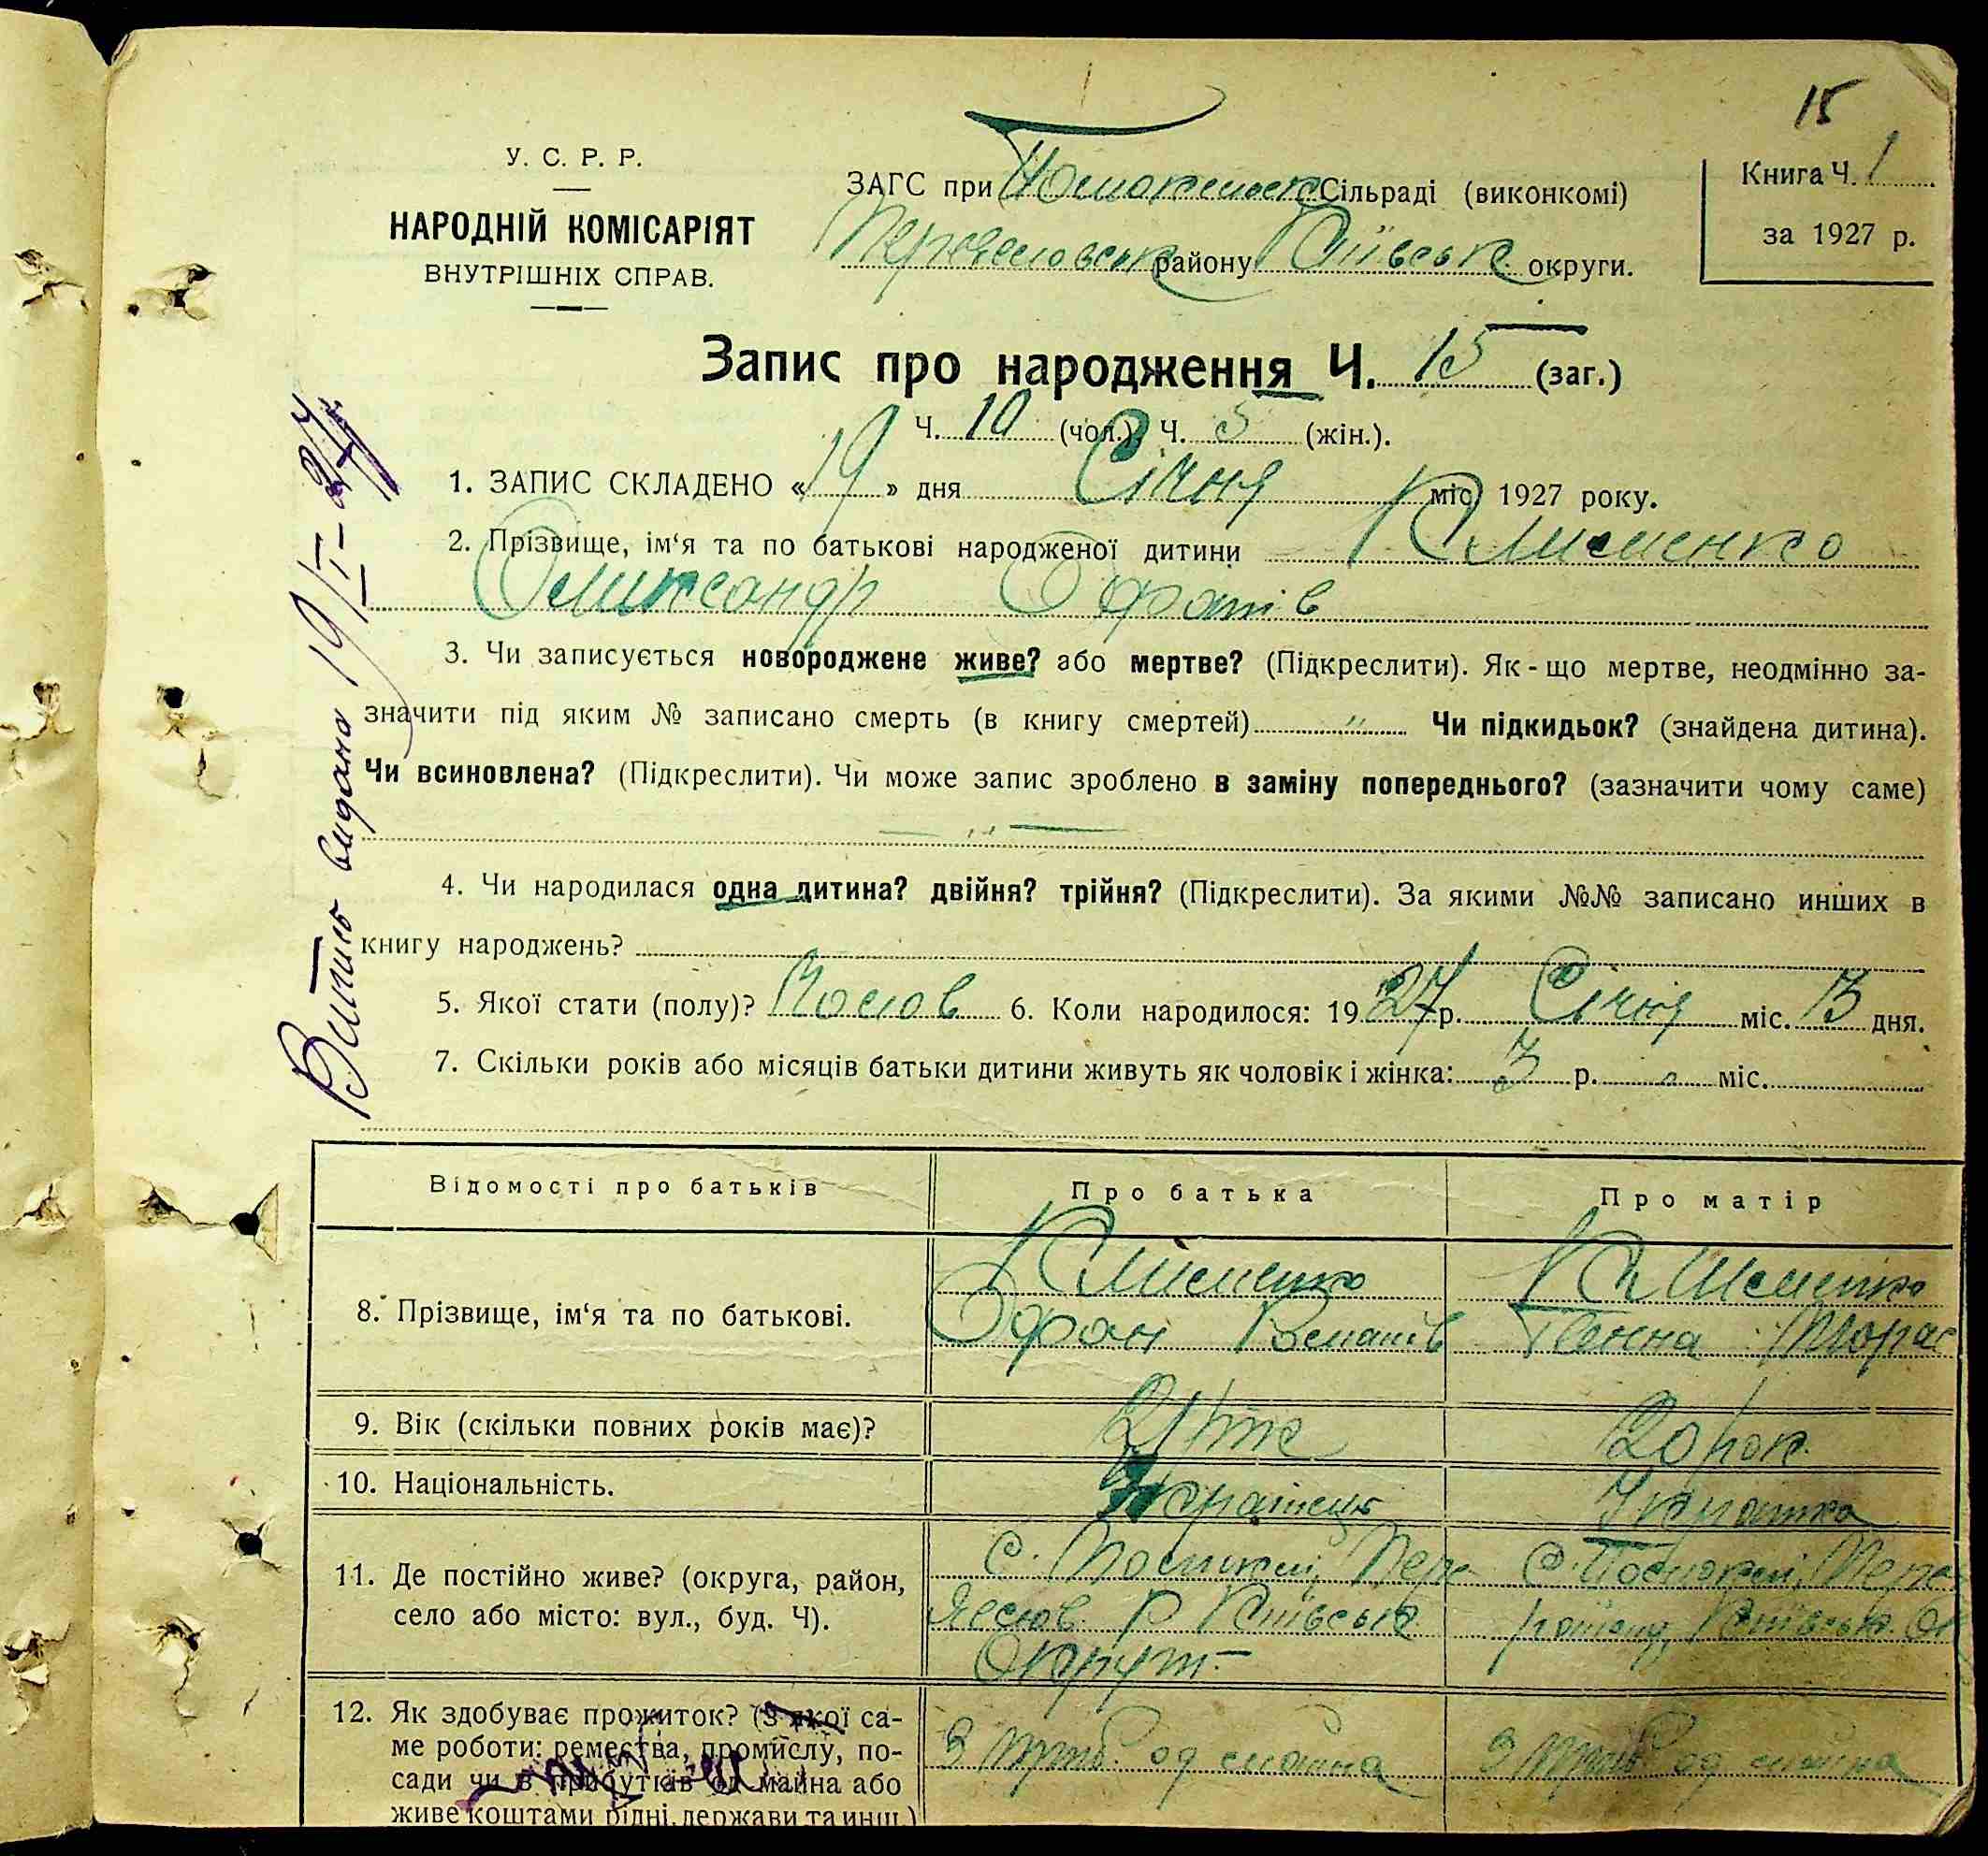 15
У. С. Р. Р.
НАРОДНІЙ КОМІСАРІЯТ
ВНУТРІШНІХ СПРАВ.
ЗАГС при Сільраді (виконкомі)
району Київськ. округи.
Книга Ч. 1
за 1927 р.
Запис про народження Ч. 15 (заг.)
Ч. 10 (чол.) Ч. 5 (жін.).
1. ЗАПИС СКЛАДЕНО «19» дня Січня міс. 1927 року.
2. Прізвище, ім‘я та по батькові народженої дитини Клименко
Олександр
3. Чи записується новороджене живе? або мертве? (Підкреслити). Як-що мертве, неодмінно за-
значити під яким № записано смерть (в книгу смертей) „ Чи підкидьок? (знайдена дитина).
Чи всиновлена? (Підкреслити). Чи може запис зроблено в заміну попереднього? (зазначити чому саме)
— „ —
4. Чи народилася одна дитина? двійня? трійня? (Підкреслити). За якими №№ записано инших в
книгу народжень?
5. Якої стати (полу)? 6. Коли народилося: 1927 р. Січня міс. 13 дня.
7. Скільки років або місяців батьки дитини живуть як чоловік і жінка: 3 р. міс.
Витяг видано 19/I-27
Відомості про батьків Про батька Про матір
8. Прізвище, ім‘я та по батькові.
Клименко Клименко
9. Вік (скільки повних років має)? 20 рок.
10. Національність. Українець Українка
11. Де постійно живе? (округа, район,
село або місто: вул., буд. Ч).
с. Пере с.
Р. Київськ. Київськ.
Округи
12. Як здобуває прожиток? (З якої са-
ме роботи: ремества, промислу, по-
сади чи в прибутків од майна або
живе коштами рідні, держави та инш.)
З приб. од майна З приб. од майна